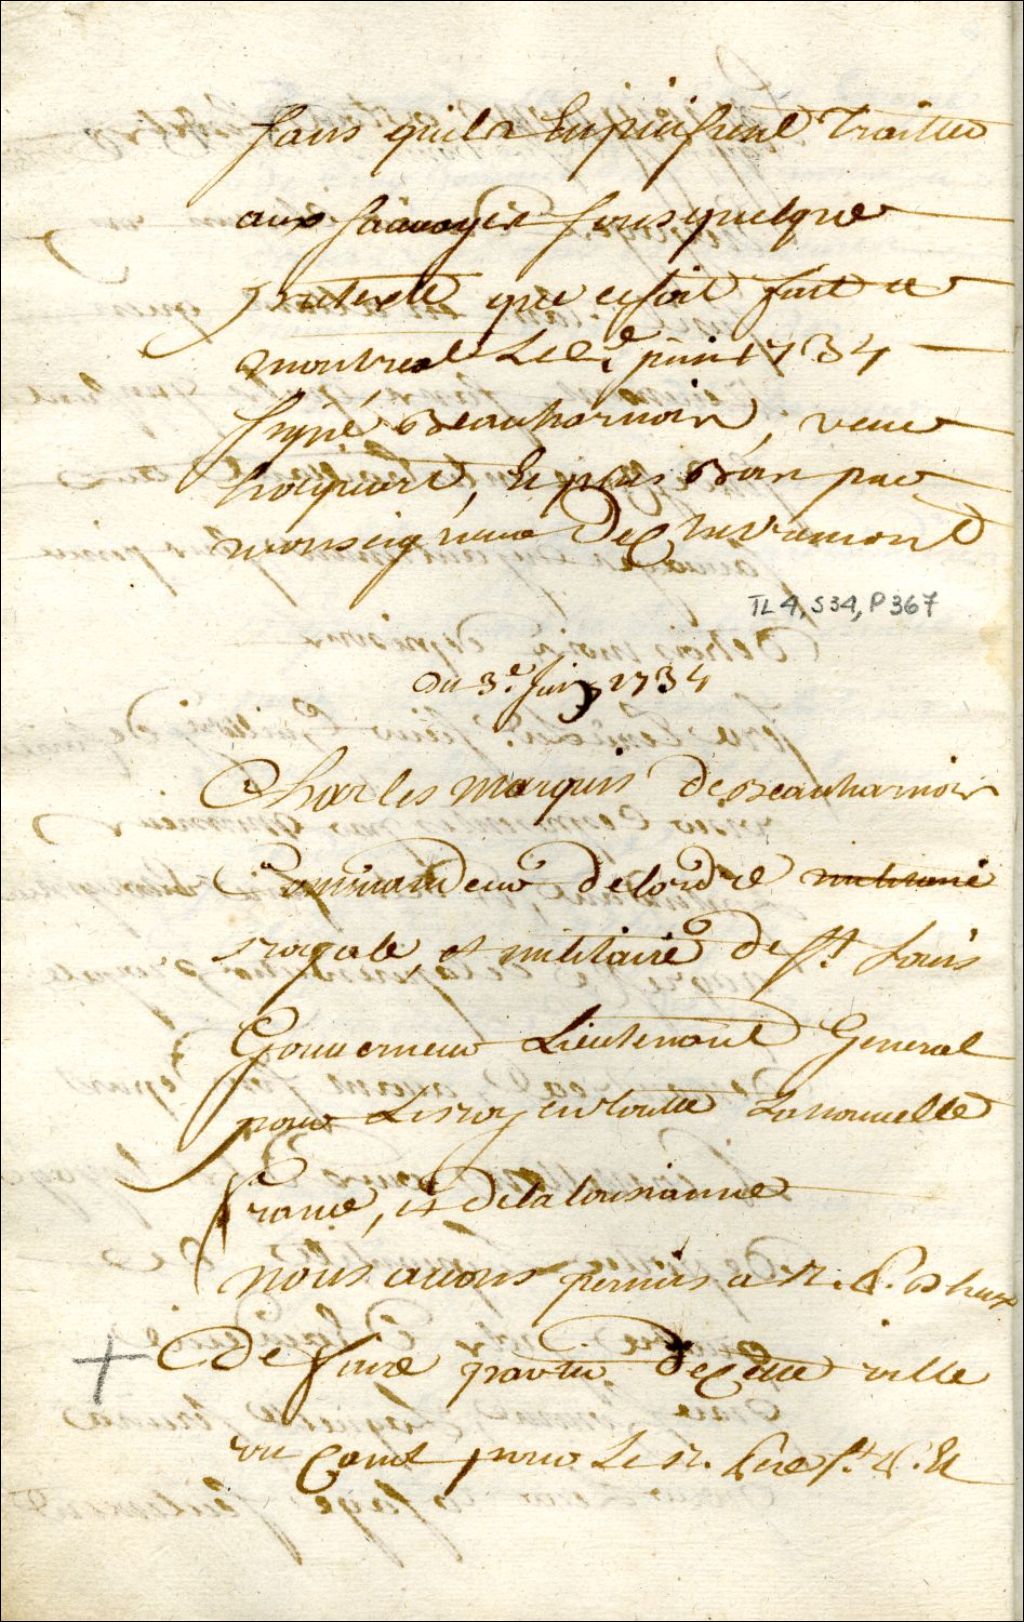 sans quils En puissent Traitter
aux sauvages sous quelque
pretexte que ce soit fait a
montreal Le 2.e juin 1734
signé Beauharnois, veu
hocquart, Et plus Bas par
monseigneur Dechevremont
TL4, S34, P367
Du 3.e Juin 1734
Charles marquis de Beauharnois
Commandeur de lordre militaire
royale, et militaire de St. Louis
Gouverneur Lieutenant General
pour Le roy en toutte La nouvelle
france, et de la Louisianne
nous avons permis a R. P.
De faire partir de cette ville
un Canot pour Le R. Pere St. P. Et